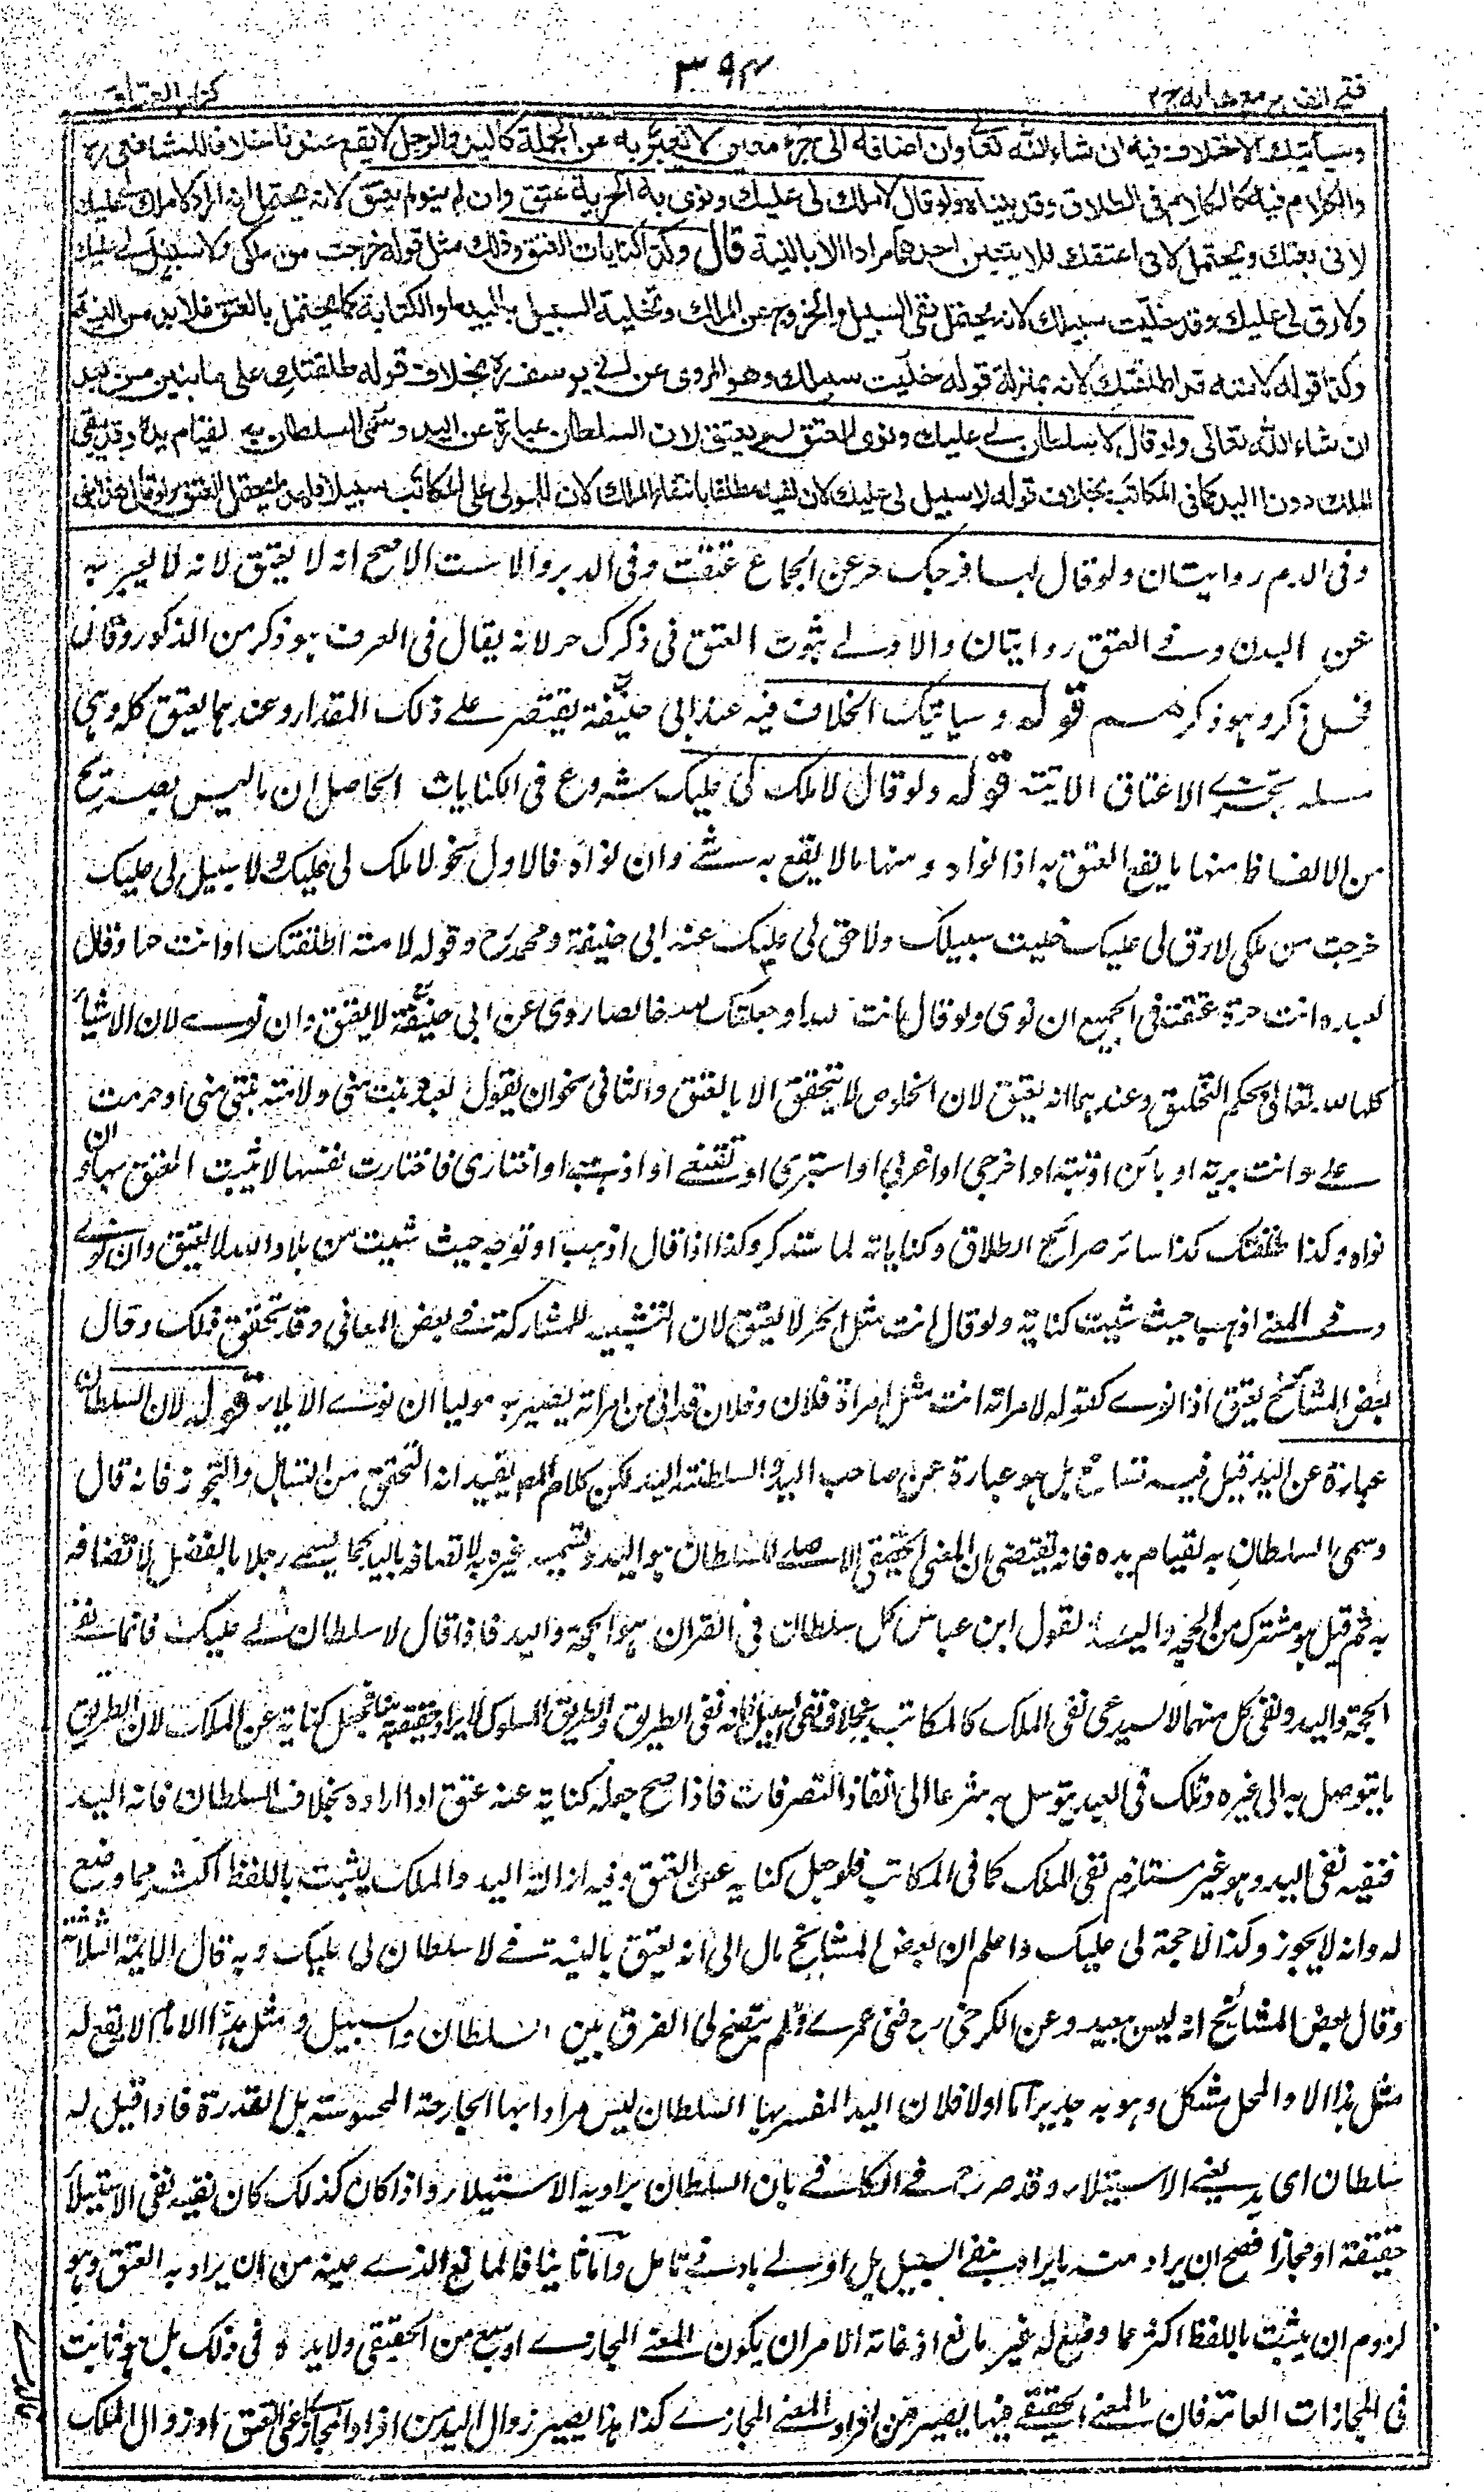 ۳۹۴
فتح القدير مع هدايه ج۲
كتاب العتاق
وسيأتيك الاختلاف فيه ان شاء الله تعالى وان اضافه الى جزء معين لا يعبر به عن الجملة كاليد والرجل لا يقع عندنا خلافا للشافعى رح
والكلام فيه كالكلام فى الطلاق وقد بيناه ولو قال لا ملك لى عليك ونوى به الحرية عتق وان لم ينو لم يعتق لانه يحتمل انه اراد لا ملك لى عليك
لانى بعتك ويحتمل لانى اعتقتك فلا يتعين احدهما مرادا الا بالنية قال وكذا كنايات العتق وذلك مثل قوله خرجت من ملكى ولا سبيل لى عليك
ولا رق لى عليك وقد خليت سبيلك لانه يحتمل نفى السبيل والخروج عن الملك وتخلية السبيل بالبيع او الكتابة كما يحتمل بالعتق فلا بد من النية
وكذا قوله لامته قد اطلقتك لانه بمنزلة قوله خليت سبيلك وهو المروى عن ابى يوسف ره بخلاف قوله طلقتك على ما نبين من بعد
ان شاء الله تعالى ولو قال لا سلطان لى عليك ونوى العتق لم يعتق لان السلطان عبارة عن اليد وسمى السلطان به لقيام يده وقد يبقى
الملك دون اليد كما فى المكاتب بخلاف قوله لا سبيل لى عليك لان نفيه مطلقا بانتفاء الملك لان للمولى على المكاتب سبيلا فلهذا يحتمل العتق ولو قال هذا ابنى
وفى الدم روايتان ولو قال لها فرجك حر عن الجماع عتقت وفى الدبر والاست الاصح انه لا يعتق لانه لا يعبر به
عن البدن وفى العتق روايتان والاولى ثبوت العتق فى ذكرك حر لانه يقال فى العرف هو ذكر من الذكور وفلان
فحل ذكر وهو ذكرهم قوله وسيأتيك الخلاف فيه عند ابى حنيفة يقتصر على ذلك المقدار وعندهما يعتق كله وهى
مسئلة تجزى الاعتاق الاتية قوله ولو قال لا ملك لى عليك شروع فى الكنايات الحاصل ان ما ليس بصريح
من الالفاظ منها ما يقع العتق به اذا نواه ومنها ما لا يقع به شئ وان نواه فالاول نحو لا ملك لى عليك ولا سبيل لى عليك
خرجت من ملكى لا رق لى عليك خليت سبيلك ولا حق لى عليك عند ابى حنيفة ومحمد رح وقوله لامته اطلقتك او انت حما وقال
لعبده انت حرة عتقت فى الجميع ان نوى ولو قال انت لله او جعلتك لله خالصا روى عن ابى حنيفة لا يعتق وان نوى لان الاشياء
كلها لله تعالى بحكم التخليق وعندهما انه يعتق لان الخلوص لا يتحقق الا بالعتق والثانى نحو ان يقول لعبده بنت منى ولامته بنتى منى او حرمت
على وانت برية او بائن او بتة او اخرجى او اغربى او استبرى او تقنعى او اذهبى او اختارى فاختارت نفسها لا يثبت العتق بها وان
نواه وكذا طلقتك كذا سائر صرائح الطلاق وكناياته لما سنذكر وكذا اذا قال اذهب او توجه حيث شئت من بلاد الله لا يعتق وان نوى
وفى المغنى اذهب حيث شئت كناية ولو قال انت مثل الحر لا يعتق لان التشبيه للمشاركة فى بعض المعانى وقد تحقق فلك وقال
بعض المشائخ يعتق اذا نوى كقوله لامراته انت مثل امراة فلان وفلان قد الى من امراته يصير به موليا ان نوى الايلاء قوله لان السلطان
عبارة عن اليد قيل فيه تسامح بل هو عبارة عن صاحب اليد والسلطنة اليد لكن كلام المص يفيد انه التحقق من التساهل والتجوز فانه قال
وسمى السلطان به لقيام يده فانه يقتضى ان المعنى الحقيقى الاصلى للسلطان هو اليد وتسمية غيره به لاتصافه باليد كما يسمى رجلا بالفضل لاتصافه
به ثم قيل هو مشترك من الحجة واليد لقول ابن عباس كل سلطان فى القران هو الحجة واليد فاذا قال لا سلطان لى عليك فانما نفى
الحجة واليد ونفى كل منهما لا يستدعى نفى الملك كالمكاتب بخلاف نفى السبيل فانه نفى الطريق والطريق المسلوك لا يراد حقيقته هنا فجعل كناية عن الملك لان الطريق
ما يتوصل به الى غيره وتلك فى العبد يتوسل به شرعا الى انفاذ التصرفات فاذا صح جعله كناية عنه عتق اذا اراده بخلاف السلطان فانه اليد
فنفيه نفى اليد وهو غير مستلزم نفى الملك كما فى المكاتب فلو جعل كناية عن العتق وفيه ازالة اليد والملك يثبت باللفظ اكثر مما وضع
له وانه لا يجوز وكذا لا حجة لى عليك واعلم ان بعض المشائخ مال الى انه يعتق بالنية فى لا سلطان لى عليك وبه قال الايمة الثلاثة
وقال بعض المشائخ انه ليس ببعيد وعن الكرخى رح فنى عمرى ولم يتضح لى الفرق بين السلطان والسبيل ومثل هذا الامام لا يقع له
مثل هذا الا والمحل مشكل وهو به جدير اما اولا فلان اليد المفسر بها السلطان ليس مرادا بها الجارحة المحسوسة بل القدرة فاذا قيل له
سلطان اى يد يعنى الاستيلاء وقد صرح فى الكافى بان السلطان يراد به الاستيلاء واذا كان كذلك كان نفيه نفى الاستيلاء
حقيقة او مجازا فصح ان يراد منه ما يراد بنفى السبيل بل اولى بادنى تامل واما ثانيا فالمانع الذى عينه من ان يراد به العتق وهو
لزوم ان يثبت باللفظ اكثر مما وضع له غير مانع اذ غاية الامر ان يكون المعنى المجازى اوسع من الحقيقى ولا بد ع فى ذلك بل هو ثابت
فى المجازات العامة فان المعنى الحقيقى فيها يصير من افراد المعنى المجازى كذا هذا يصير زوال اليد من افراد المجازى اعنى العتق او زوال الملك